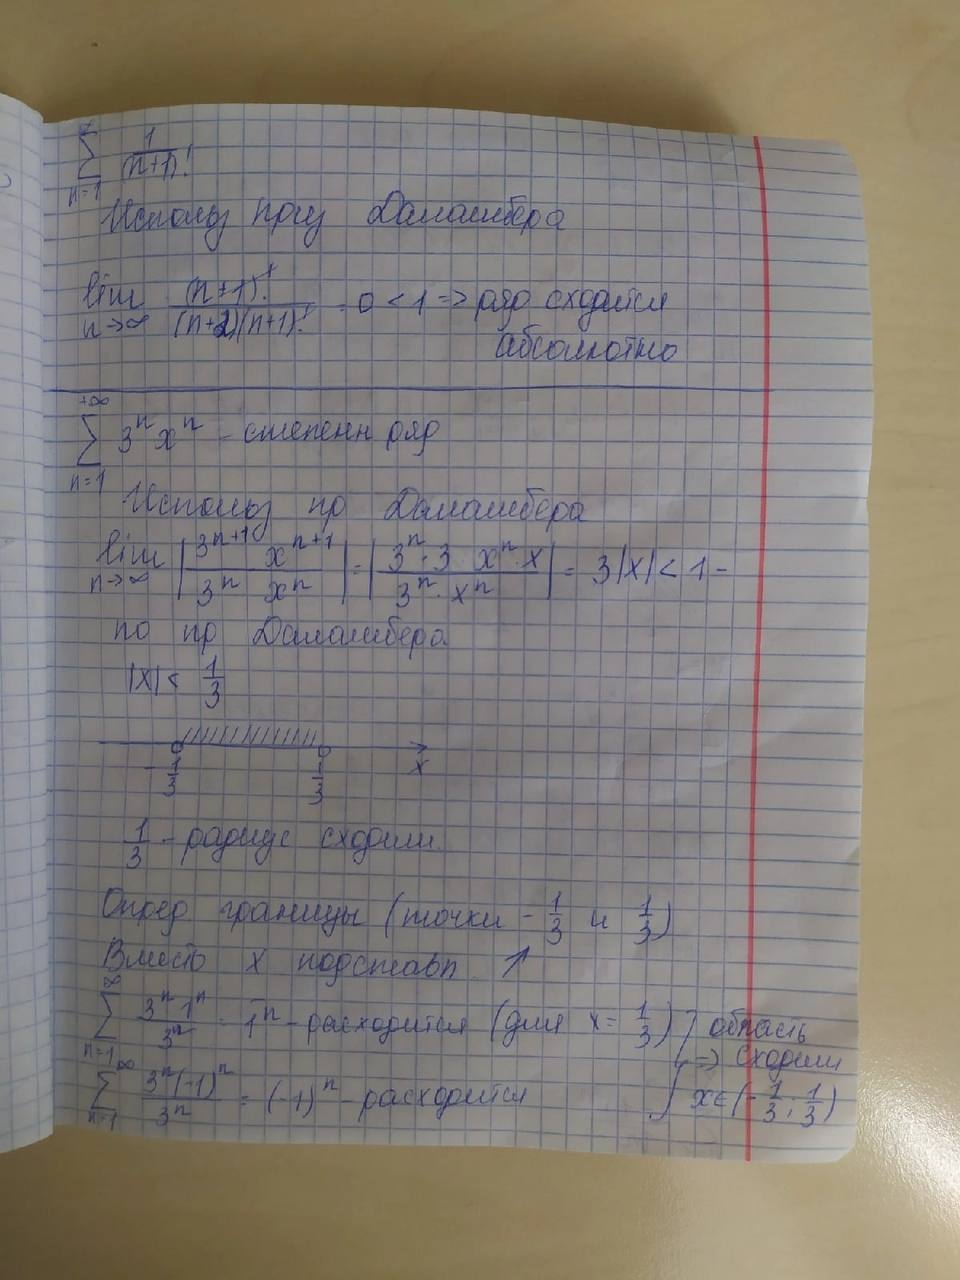 ∞
∑ 1/(n+1)!
n=1
Использ призн Даламбера
lim (n+1)!/((n+2)(n+1)!) = 0 < 1 => ряд сходится
n→∞
абсолютно
+∞
∑ 3ⁿxⁿ - степенн ряд
n=1
Использ пр Даламбера
lim |3ⁿ⁺¹ xⁿ⁺¹/(3ⁿ xⁿ)| = |3ⁿ·3 xⁿ·x/(3ⁿ·xⁿ)| = 3|x| < 1 -
n→∞
по пр Даламбера
|x| < 1/3
-1/3 1/3 x
1/3 - радиус сходим.
Опред границы (точки -1/3 и 1/3)
Вместо x подставл ↑
∞
∑ 3ⁿ1ⁿ/3ⁿ = 1ⁿ - расходится (для x = 1/3) область
n=1
=> сходим
∞
∑ 3ⁿ(-1)ⁿ/3ⁿ = (-1)ⁿ - расходится x∈(-1/3; 1/3)
n=1